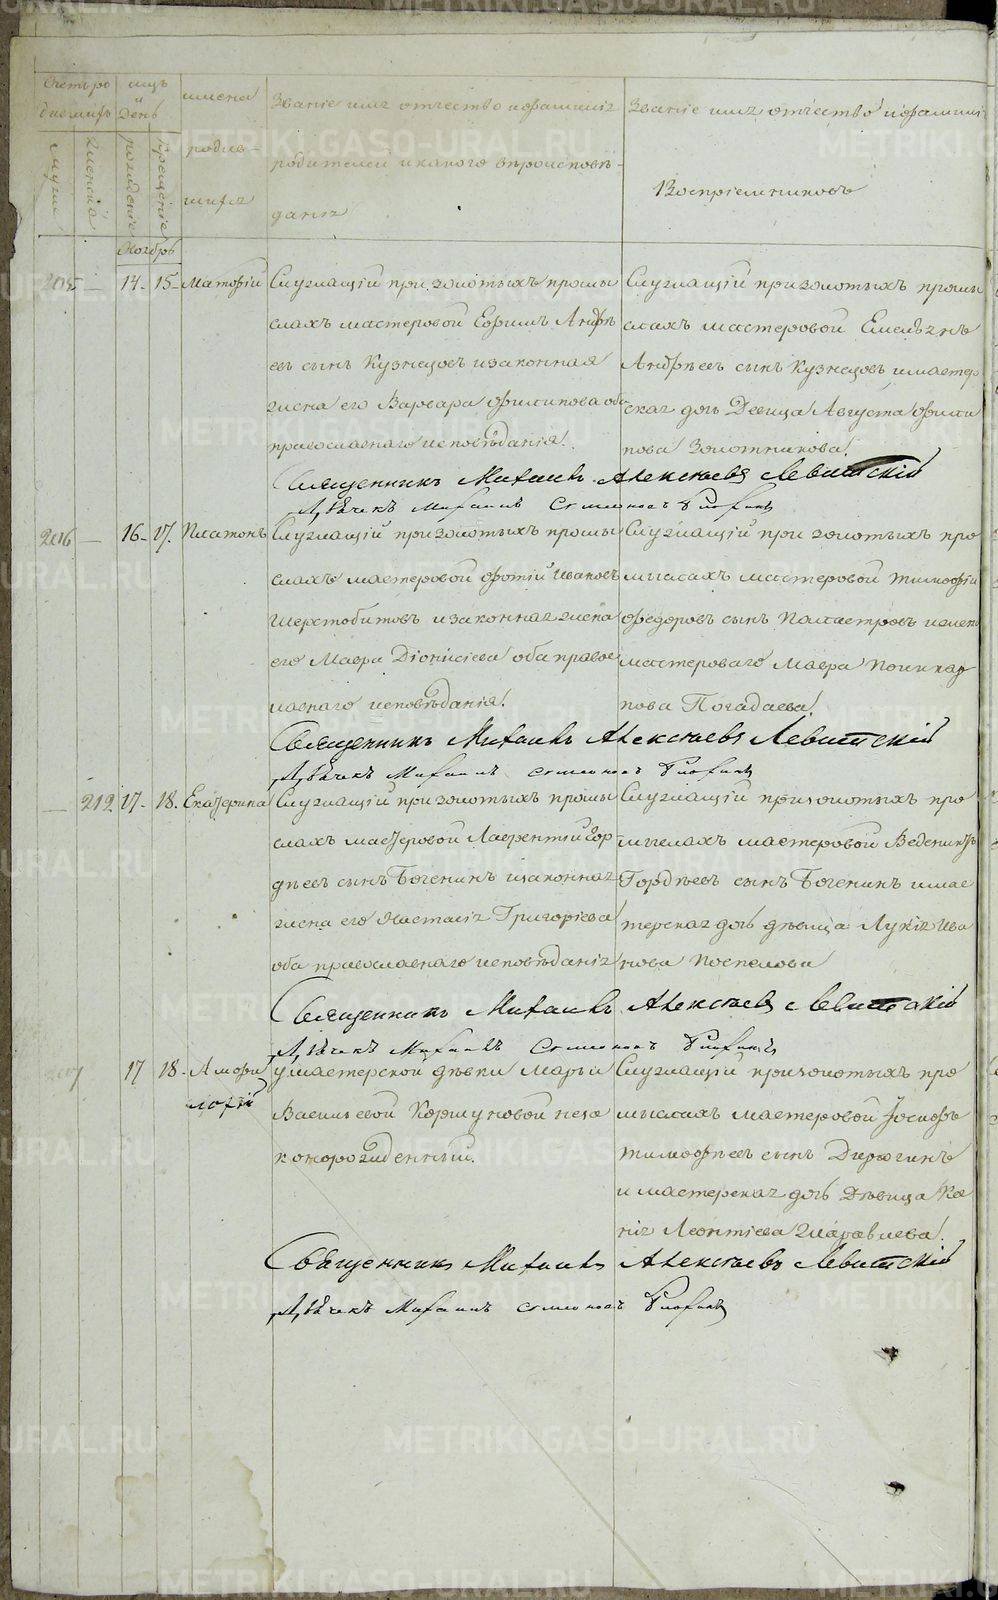 Счетъ ро
дившихъ
мужес
женска
мцъ
День
рожденіе
крещеніе
имена
родив-
шихъ
Званіе имя отчество и фамилія
родителей и какого вѣроисповѣ-
данія
Званіе имя отчество и фамилія
Воспріемниковъ
Ноябрь
205 — 14 - 15 - Матѳій
Служащій при золотыхъ промы
слахъ мастеровой Ефимъ Андрѣ
евъ сынъ Кузнецовъ и законная
жена его Варвара Филипова оба
православнаго исповѣданія.
Служащій при золотыхъ промы
слахъ мастеровой Емельянъ
Андрѣевъ сынъ Кузнецовъ и мастер
ская дочь Девица Августа Фили
пова Золотникова.
Священникъ Михаилъ Алексѣевъ Левитскій
Дьячекъ Михаилъ
206 — 16 - 17. Платонъ
Служащій при золотыхъ промы
слахъ мастеровой Фотій Ивановъ
Шерстобитовъ и законная жена
его Мавра Діонисіева оба правос
лавнаго исповѣданія.
Служащій при золотыхъ про
мыслахъ мастеровой Тимофѣй
Федоровъ сынъ Палтастровъ и жена
мастероваго Мавра Поликар
пова Погадаева.
Священникъ Михаилъ Алексѣевъ Левитскій
Дьячекъ Михаилъ
— 212 17 - 18. Екатерина
Служащій при золотыхъ промы
слахъ мастеровой Лаврентій Гор
дѣевъ сынъ Боженинъ и законная
жена его Настасія Григоріева
оба православнаго исповѣданія
Служащій при золотыхъ про
мыслахъ мастеровой Веденихтъ
Гордѣевъ сынъ Боженинъ и мас
терская дочь дѣвица Лукія Ива
нова Поспелова
Священникъ Михаилъ Алексѣевъ Левитскій
Дьячекъ Михаилъ
207 17 18 - Амфи
лофій
у мастерской дѣвки Марьи
Васильевой Коршуновой неза
коннорожденный.
Служащій при золотыхъ про
мыслахъ мастеровой Іосифъ
Тимофѣевъ сынъ Дирюгинъ
и мастерская дочь Дѣвица Ксе
нія Леонтіева Журавлева.
Священникъ Михаилъ Алексѣевъ Левитскій
Дьячекъ Михаилъ
METRIKI.GASO-URAL.RU